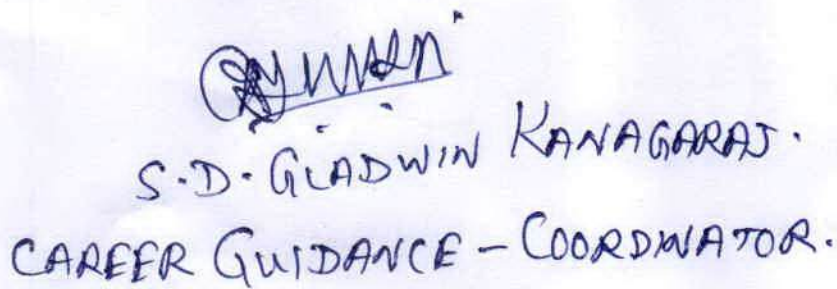 S.D. GLADWIN KANAGARAJ.
CAREER GUIDANCE - COORDINATOR.